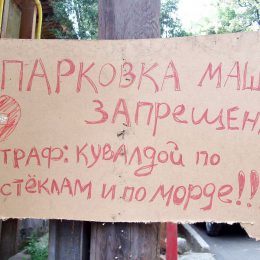 ПАРКОВКА МАШ
ЗАПРЕЩЕН
ТРАФ: КУВАЛДОЙ ПО
СТЁКЛАМ И ПО МОРДЕ!!!